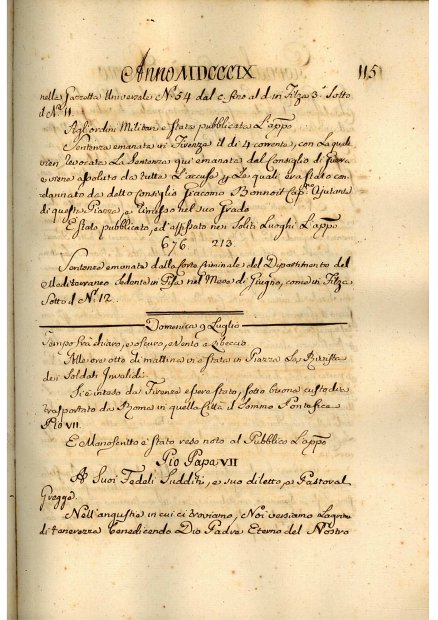 Anno MDCCCIX 115
nella Gazzetta Universale N.º 54 dal c. fino al d. in Filza 3ª Sotto
d. Nº. 11.
Agl'ordini Militari è stata pubblicata L'app.º
Sentenza emanata in Firenze il dì 4 corrente, con La quale
vien revocata La Sentenza qui emanata dal Consiglio di Guerra
e viene assoluto da tutta L'accusa per La quale era stato con-
dannato da detto Consiglio Giacomo Bonnoit Cap.º Ajutante
di questa Piazza, e rimesso nel suo Grado
È stato pubblicato, ed affissato nei Soliti Luoghi L'app.º
676 213.
Sentenza emanata dalla Corte Criminale del Dipartimento del
Mediterraneo Sedente in Pisa nel Mese di Giugno, come in Filza
Sotto d. Nº. 12.
Domenica 9 Luglio
Tempo frà chiaro, e oscuro, e Vento a Libeccio.
Alle ore otto di mattina vi è stata in Piazza La Rivista
dei Soldati Invalidi.
Si è inteso da Firenze essere stato, sotto buona custodia
trasportato da Roma in quella Città il Sommo Pontefice
Pio VII.
E Manoscritto è stato reso noto al Pubblico L'app.º
Pio Papa VII
Ai Suoi Fedeli Sudditi, e suo diletto, e Pastoral
Gregge.
Nell'angustie in cui ci troviamo, Noi versiamo Lagrime
di tenerezza benedicendo Dio Padre Eterno del Nostro